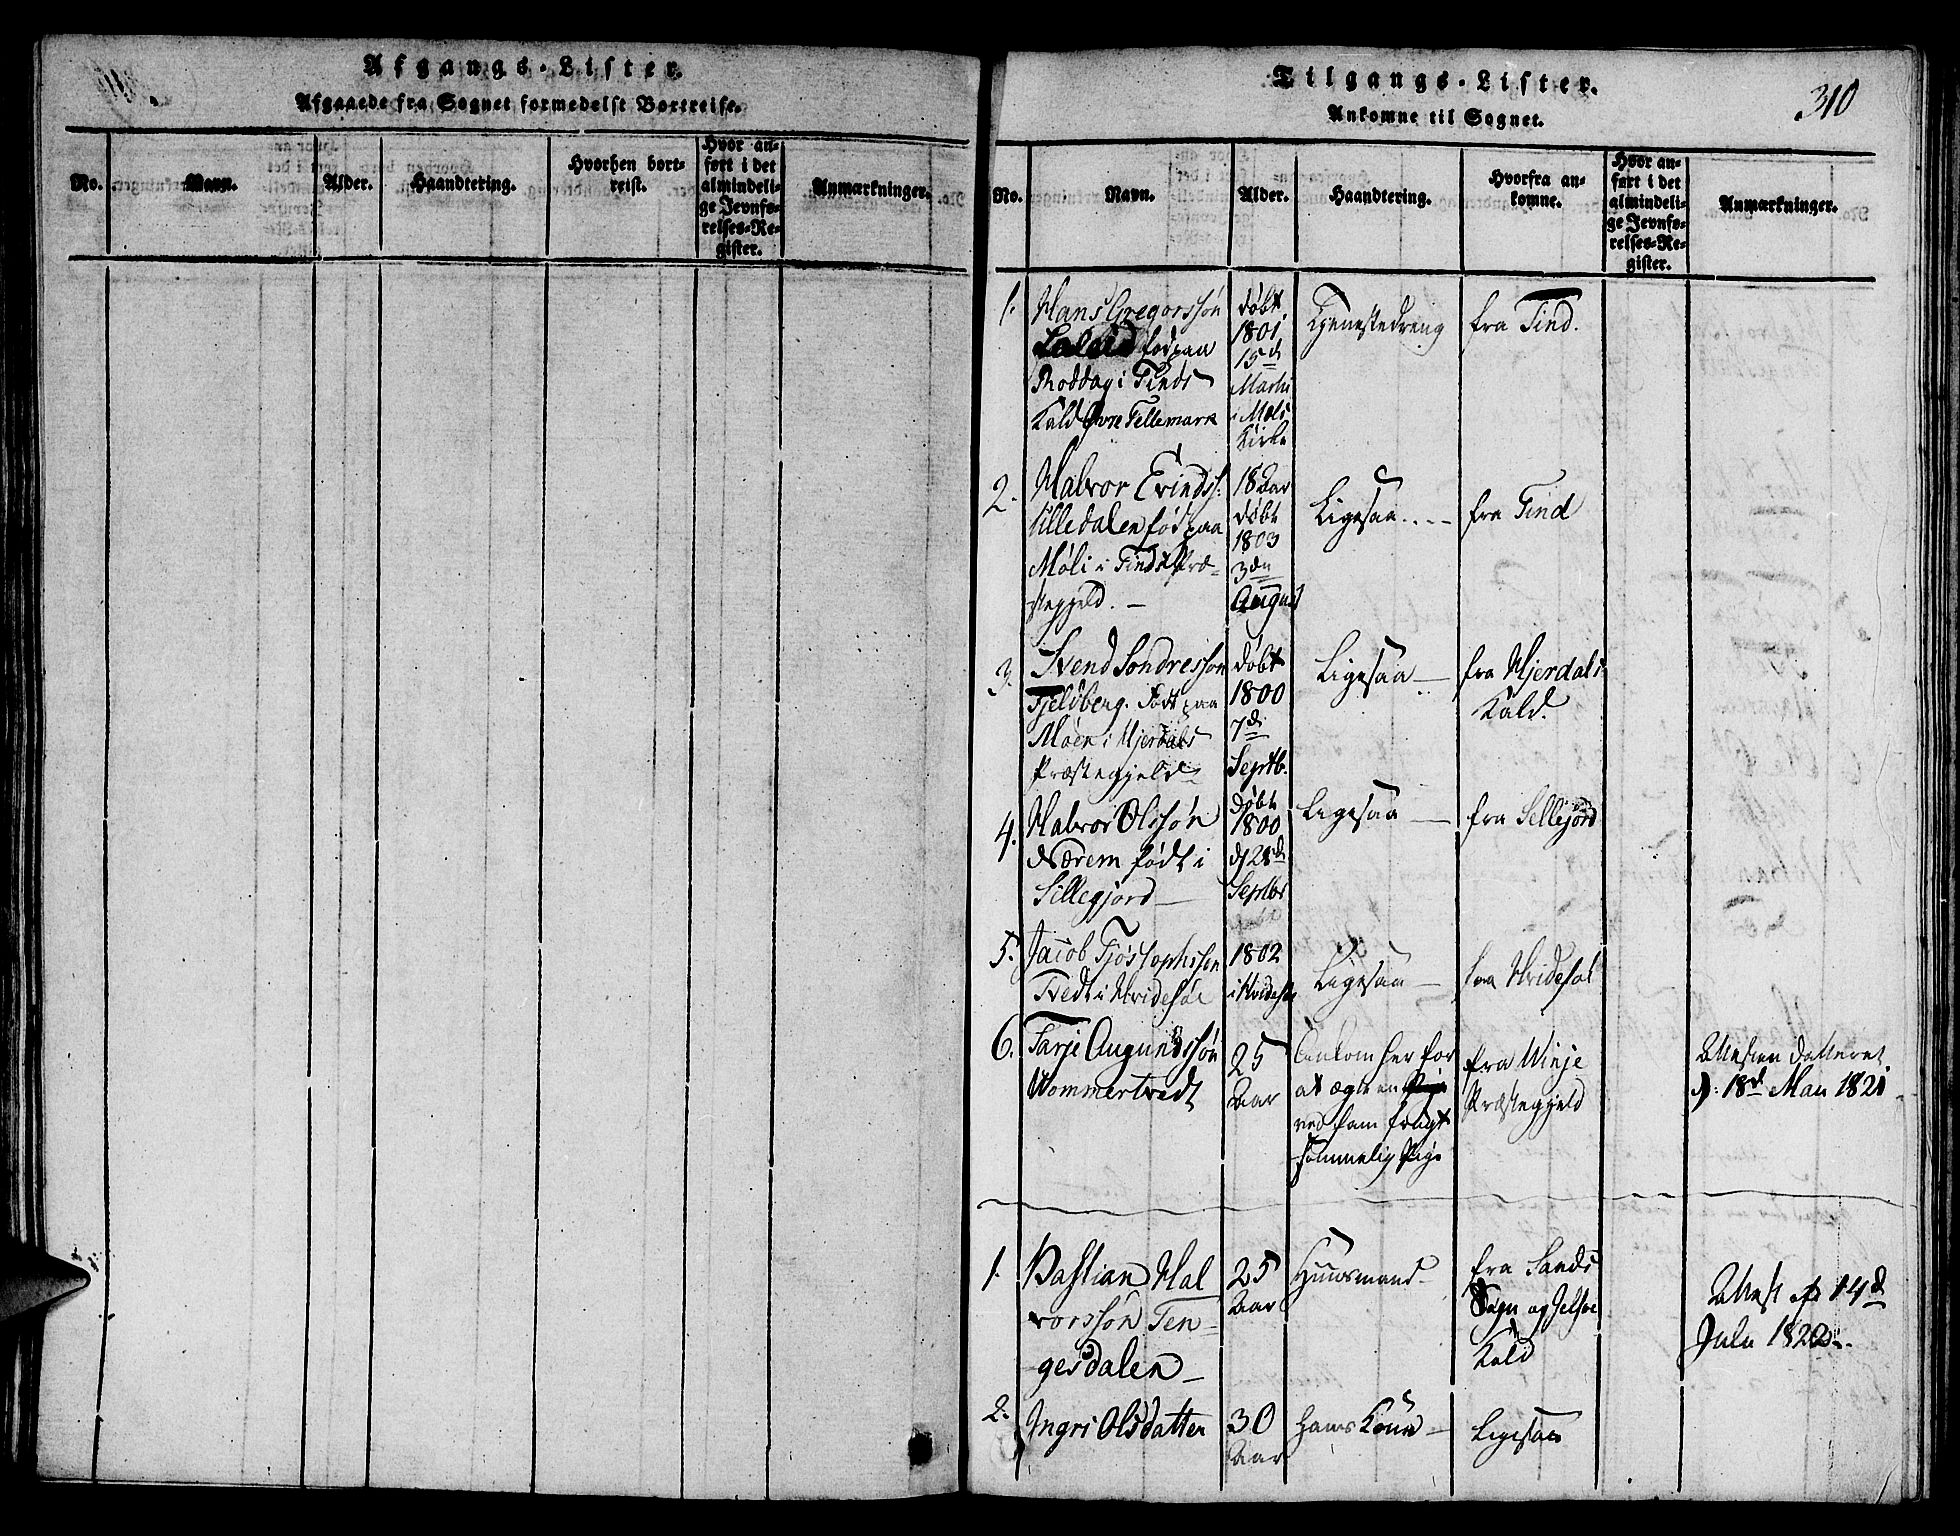 Afgangs-Lister.
Afgaaede fra Sognet formedelst Bortreise.
No.
Navn.
Alder.
Haandtering.
Hvorhen bort-
reist.
Hvor an-
ført i det
almindeli-
ge Jevnfø-
relses-Re-
gister.
Anmærkninger.
Tilgangs-Lister.
310
Ankomne til Sognet.
No.
Navn.
Alder.
Haandtering.
Hvorfra an-
komne.
Hvor an-
ført i det
almindeli-
ge Jevnfø-
relses-Re-
gister.
Anmærkninger.
1.
Hans Gregorssøn
fød paa
i Tinds
Kald Øvre Tellemark
døbt
1801
15d
Martii
i Mæls
Kirke
Tjenestedreng
fra Tind.
2.
Halvor Evindss:
Silledalen fød paa
Møli i Tinds Præ-
stegjeld. —
18 Aar
døbt
1803
3den
August
Ligesaa....
fra Tind
3.
Svend Sondressøn
Fjeldberg. Født paa
Møen i Hjerdals
Præstegjeld
døbt
1800
7de
Septb.
Ligesaa —
fra Hjerdals
Kald.
4.
Halvor Olssøn
Nærem født i
Sillegjord —
døbt
1800
d 28d
Septbr
Ligesaa —
fra Sellejord
5.
Jacob Tjøstophssen
Tvedt i Hvidesøe
1802
i Hvidesøe
Ligesaa —
fra Hvidesøe
6.
Tarje Augundssøn
Wommertvedt
25
Aar
Ankom her for
at ægte en
ved ham frugt-
sommelig Pige
fra Winje
Præstegjeld
Attesten datteret
d: 18d Maii 1821
1.
Bastian Hal
vorssøn Ten-
gesdalen —
25
Aar
Huusmand
fra Sands
Sogn og Jelsøe
Kald
Attest af 14d
Julii 1820.
2.
Ingri Olsdatter
30
Aar
Hans Kone —
Ligesaa